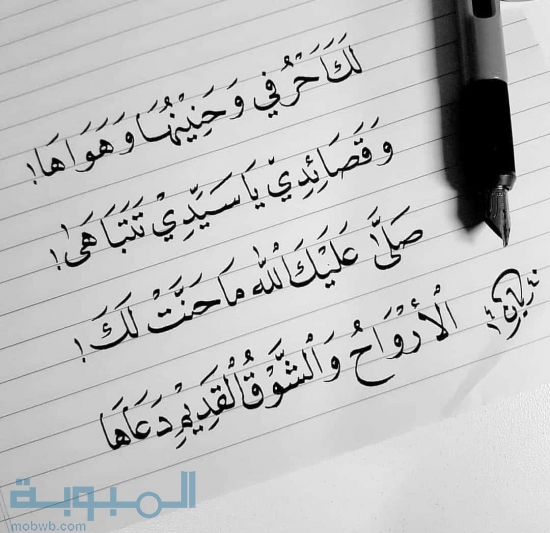 لَكَ أَحْرُفي وَحَنِينْهَا وَهَوَاهَا !
وَقَصَائِدِيّ يَا سَيِّدِيْ تَتَبَاهَىٰ !
صَلَّىٰ عَلَيْكَ اللّٰه مَا حَنَّتْ لَكَ !
الْأَرْوَاحُ وَالْشَّوْقُ الْقَدِيْمِ دَعَاهَا
المبوبة
mobwb.com